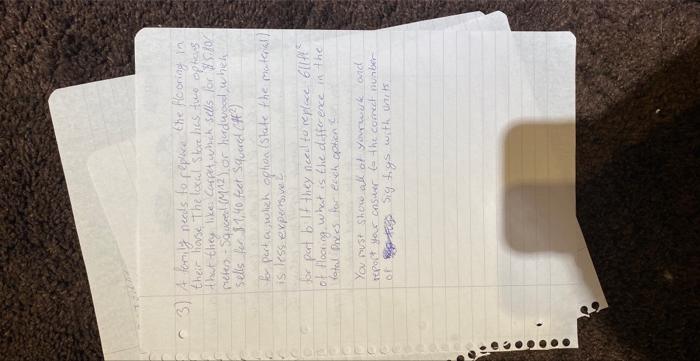 3) A family needs to replace the flooring in
their house. The local store has two options
that they like: carpet, which sells for $15.80/
meters-squared (M^2) or hardwood, which
sells for $1.40 feet squared (ft²)
for part a, which option (state the material)
is less expensive?
for part b If they need to replace 611ft²
of flooring what is the difference in the
total prices for each option?
You must show all of your work and
report your answer to the correct number
of sig figs with units